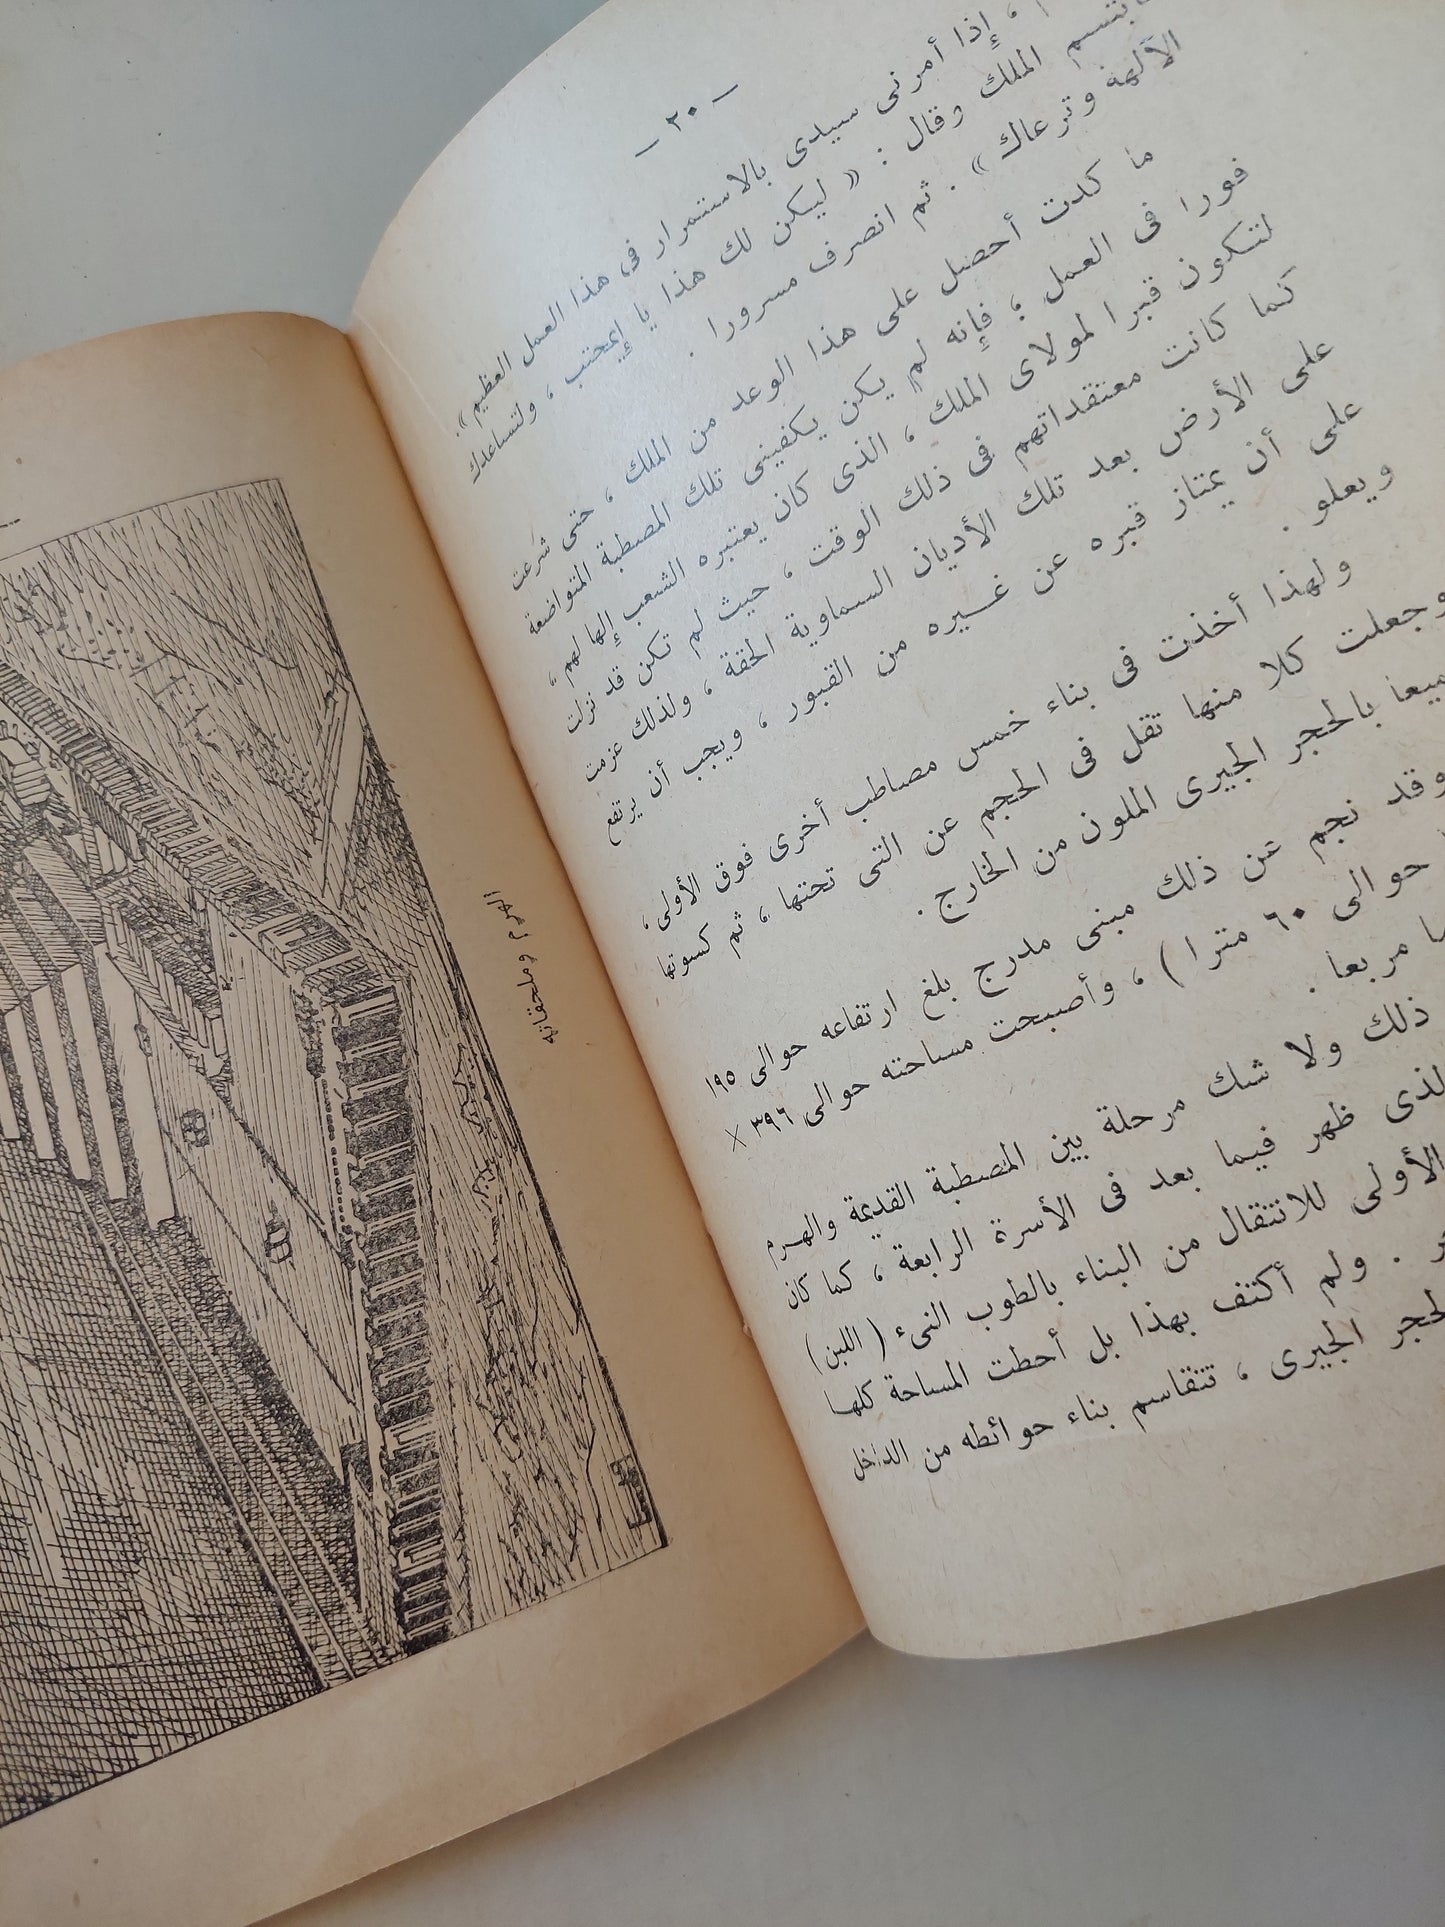 — ٢٠ —
، إذا أمرنى سيدى بالاستمرار فى هذا العمل العظيم» .
الملك وقال : « ليكن لك هذا يا إيمحتب ، ولتساعدك
الآلهة وترعاك » . ثم انصرف مسرورا .
ما كدت أحصل على هذا الوعد من الملك ، حتى شرعت
فورا فى العمل ؛ فإنه لم يكن يكفينى تلك المصطبة المتواضعة
لتكون قبرا لمولاى الملك ، الذى كان يعتبره الشعب إلها لهم ،
كما كانت معتقداتهم فى ذلك الوقت ، حيث لم تكن قد نزلت
على الأرض بعد تلك الأديان السماوية الحقة ، ولذلك عزمت
على أن يمتاز قبره عن غيره من القبور ، ويجب أن يرتفع
ويعلو .
ولهذا أخذت فى بناء خمس مصاطب أخرى فوق الأولى ،
وجعلت كلا منها تقل فى الحجم عن التى تحتها ، ثم كسوتها
بالحجر الجيرى الملون من الخارج .
وقد نجم عن ذلك مبنى مدرج بلغ ارتفاعه حوالى ١٩٥
حوالى ٦٠ مترا ) ، وأصبحت مساحته حوالى ٣٩٦ ×
مربعا .
ذلك ولا شك مرحلة بين المصطبة القديمة والهرم
الذى ظهر فيما بعد فى الأسرة الرابعة ، كما كان
الأولى للانتقال من البناء بالطوب النىء ( اللبن )
. ولم أكتف بهذا بل أحطت المساحة كلها
الجيرى ، تتقاسم بناء حوائطه من الداخل
الهرم وملحقاته